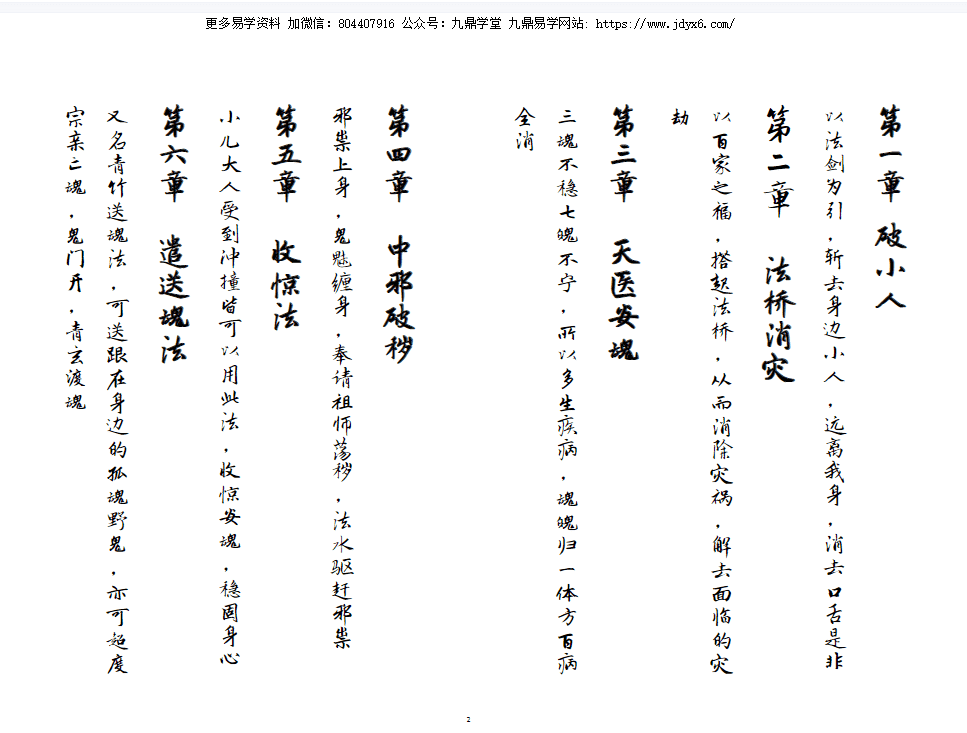 更多易学资料 加微信：804407916 公众号：九鼎学堂 九鼎易学网站: https://www.jdyx6.com/
第一章 破小人
以法剑为引，斩去身边小人，远离我身，消去口舌是非
第二章 法桥消灾
以百家之福，搭起法桥，从而消除灾祸，解去面临的灾
劫
第三章 天医安魂
三魂不稳七魄不宁，所以多生疾病，魂魄归一体方百病
全消
第四章 中邪破秽
邪祟上身，鬼魅缠身，奉请祖师荡秽，法水驱赶邪祟
第五章 收惊法
小儿大人受到冲撞皆可以用此法，收惊安魂，稳固身心
第六章 遣送魂法
又名青竹送魂法，可送跟在身边的孤魂野鬼，亦可超度
宗亲亡魂，鬼门开，青玄渡魂
2